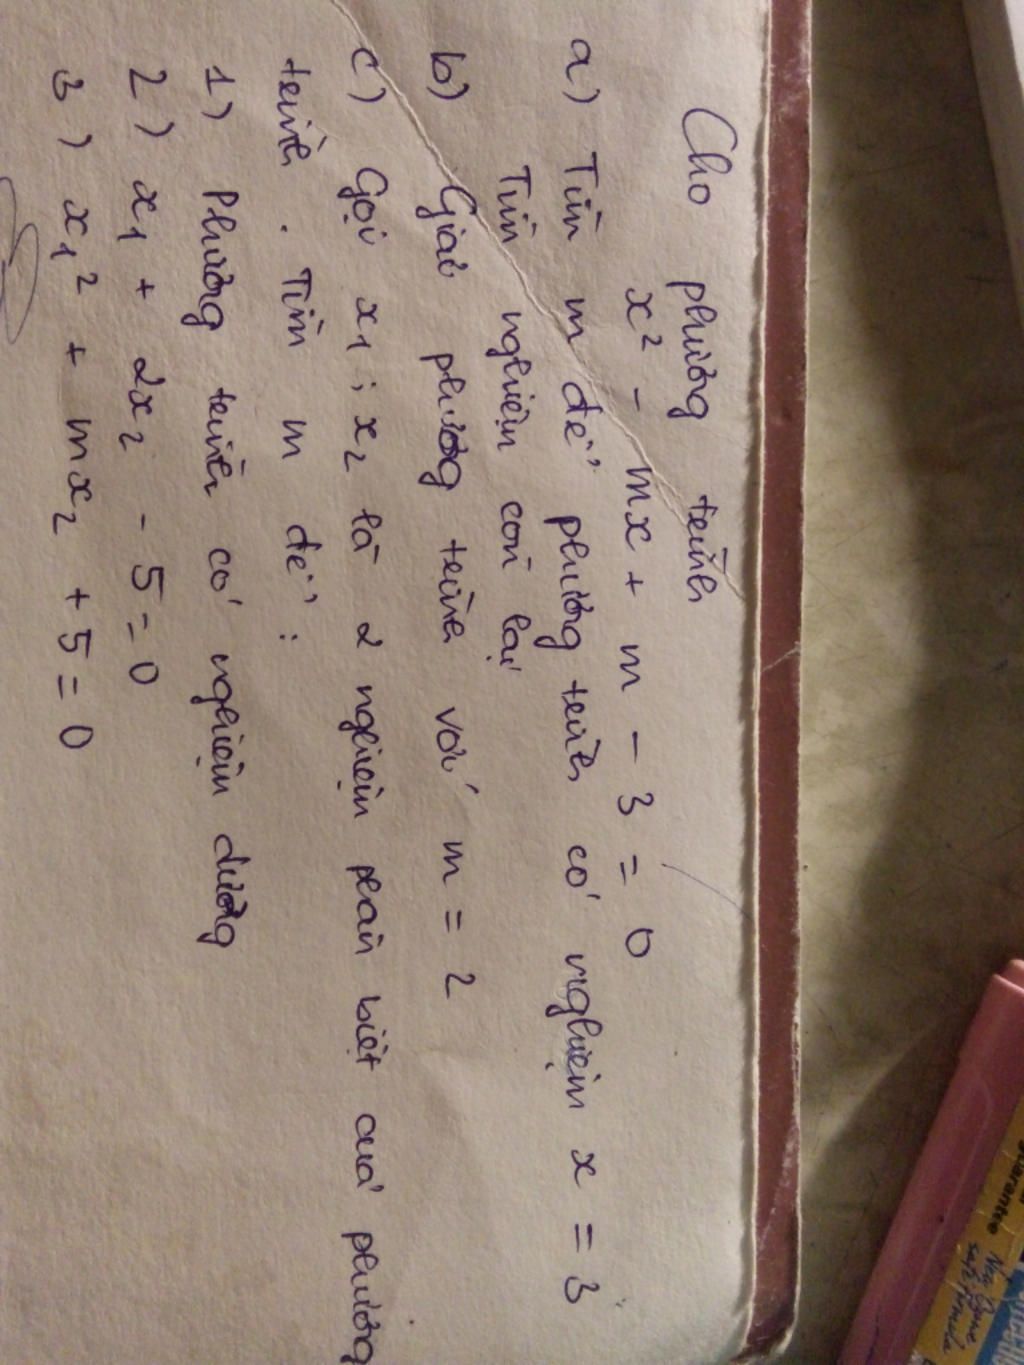 Cho phương trình
x² - mx + m - 3 = 0
a) Tìm m để phương trình có nghiệm x = 3
Tìm nghiệm còn lại
b) Giải phương trình với m = 2
c) Gọi x₁ ; x₂ là 2 nghiệm phân biệt của phương
trình . Tìm m để :
1) Phương trình có nghiệm dương
2) x₁ + 2x₂ - 5 = 0
3) x₁² + mx₂ + 5 = 0
guarantee
New Game